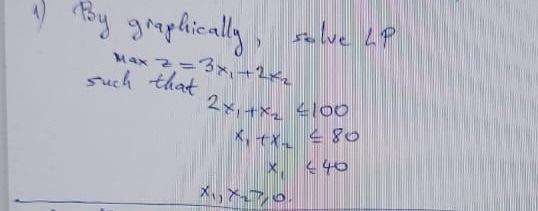 1) By graphically, solve LP
Max z = 3x₁ + 2x₂
such that
2x₁ + x₂ ≤ 100
x₁ + x₂ ≤ 80
x₁ ≤ 40
x₁, x₂ ≥ 0.